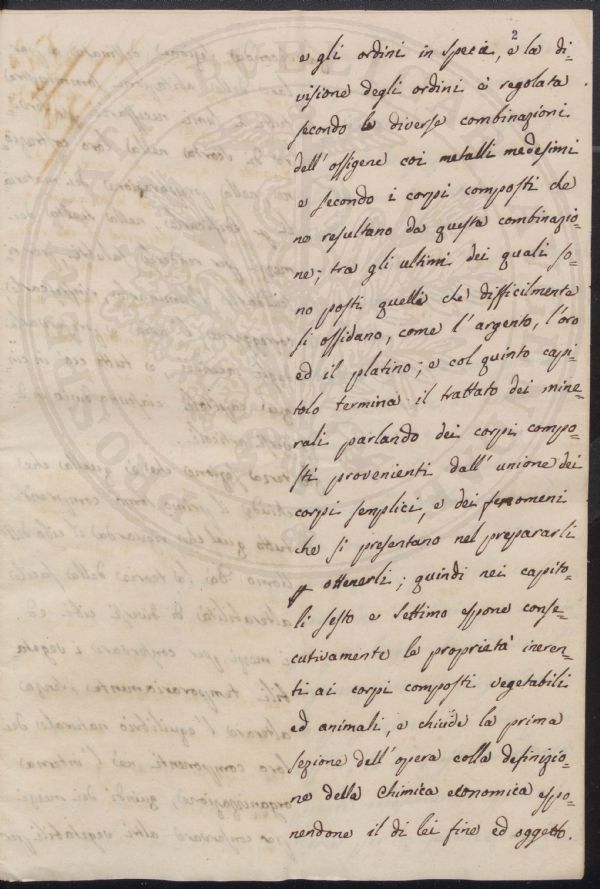 2
e gli ordini in specie, e la di-
visione degli ordini è regolata
secondo le diverse combinazioni
dell'ossigene coi metalli medesimi
e secondo i corpi composti che
ne resultano da questa combinazio-
ne; tra gli ultimi dei quali so-
no posti quelli che difficilmente
si ossidano, come l'argento, l'oro
ed il platino; e col quinto capi-
tolo termina il trattato dei mine-
rali parlando dei corpi compo-
sti provenienti dall'unione dei
corpi semplici, e dei fenomeni
che si presentano nel prepararli
ottenerli; quindi nei capito-
li sesto e settimo espone conse-
cutivamente le proprietà ineren-
ti ai corpi composti vegetabili
ed animali, e chiude la prima
sezione dell'opera colla definizio-
ne della Chimica economica espo-
nendone il di lei fine ed oggetto.